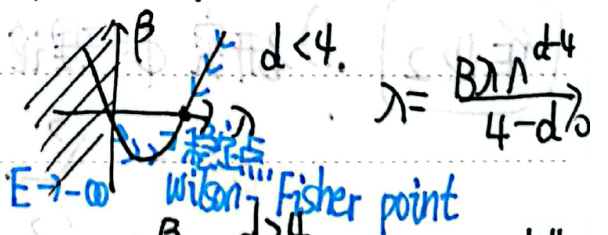 β
d<4.
λ = Bλ Λ^{d-4} / 4-d
λ
稳定点
E→-∞
Wilson-Fisher point
β d>4